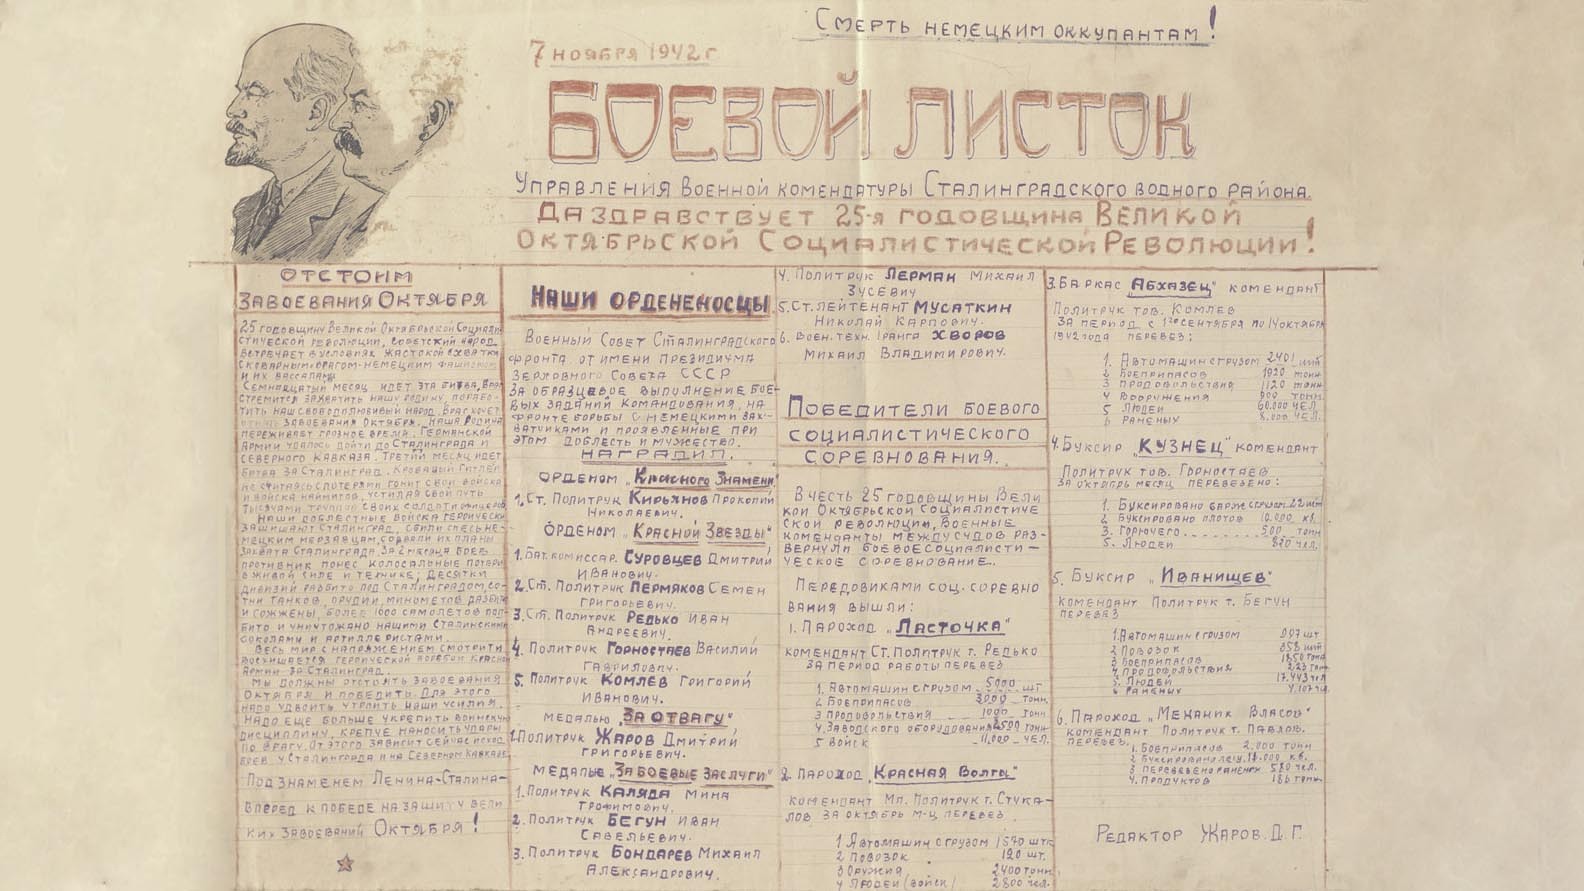 Смерть немецким оккупантам!
7 ноября 1942 г
БОЕВОЙ ЛИСТОК
Управления Военной комендатуры Сталинградского водного района.
Да здравствует 25-я годовщина Великой
Октябрьской Социалистической Революции!
Отстоим
завоевания Октября
25 годовщину Великой Октябрьской Социали
стической революции, советский народ
встречает в условиях жастокой схватки
с коварным врагом-немецким фашизмом
и их вассалами
Семнадцатый месяц идет эта битва, враг
стремится захватить нашу родину, порабо-
тить наш свободолюбивый народ. Враг хочет
завоевания Октября. Наша Родина
переживает грозное время. Германской
армии удалось дойти до Сталинграда и
Северного Кавказа. Третий месяц идет
битва за Сталинград. Кровавый Гитлер
не считаясь с потерями гонит свои войска
и войска наймитов, устилая свой путь
тысячами трупов своих солдат и офицеров
Наши доблестные войска героически
защищают Сталинград, сбили спесь не-
мецким мерзавцам, сорвали их планы
захвата Сталинграда. За 2 месяца боев
противник понес колосальные потери
в живой силе и технике; десятки
дивизий разбито под Сталинградом, со-
тни танков, орудий, минометов разбито
и сожжены, более 1000 самолетов под-
бито и уничтожано нашими Сталинскими
соколами и артиллеристами.
Весь мир с напряжением смотрит и
восхищается героической борьбой Красной
Армии за Сталинград.
Мы должны отстоять завоевания
Октября и победить. Для этого
надо удвоить утроить наши усилия.
Надо еще больше укрепить воинскую
дисциплину, крепче наносить удары
по врагу. От этого зависит сейчас исход
боев у Сталинграда и на Северном Кавказе.
Под знаменем Ленина-Сталина-
вперед к победе на защиту вели
ких завоеваний Октября!
Наши ордененосцы
Военный Совет Сталинградского
фронта от имени Президиума
Верховного Совета СССР
за образцовое выполнение бое-
вых заданий командования, на
фронте борьбы с немецкими зах-
ватчиками и проявленные при
этом доблесть и мужество.
наградил.
Орденом „Красного Знамени"
1. Ст. Политрук Кирьянов Прокопий
Николаевич.
Орденом „Красной Звезды"
1. Бат. комиссар. Суровцев Дмитрий
Иванович.
2. Ст. Политрук Пермяков Семен
Григорьевич.
3. Ст. Политрук Редько Иван
Андреевич.
4. Политрук Горностаев Василий
Гаврилович.
5. Политрук Комлев Григорий
Иванович.
медалью „За отвагу"
1. Политрук Жаров Дмитрий
Григорьевич.
медалью „За боевые заслуги"
1. Политрук Каляда Мина
Трофимович.
2. Политрук Бегун Иван
Савельевич.
3. Политрук Бондарев Михаил
Александрович.
4. Политрук Лерман Михаил
Зусевич
5. Ст. лейтенант Мусаткин
Николай Карпович.
6. Воен. техн. I ранга Хворов
Михаил Владимирович.
Победители боевого
социалистического
соревнования.
В честь 25 годовщины Вели
кой Октябрьской Социалистиче
ской революции, военные
команданты между судов раз-
вернули боевое социалисти-
ческое соревнование.
Передовиками соц. соревно
вания вышли:
1. Пароход „Ласточка"
комендант Ст. Политрук т. Редько
за период работы перевез
1. Автомашин с грузом 5000 шт
2. Боеприпасов 3000 тонн.
3 Продовольствия 1000 тонн
4. Заводского оборудования 2500 тонн
5 Войск 11,000 чел.
2. Пароход „Красная Волга"
комендант Мл. Политрук т. Стука-
лов за октябрь м-ц перевез.
1 Автомашин с грузом 1570 штк
2 Повозок 120 шт.
3 Оружия 2400 тонн
4 Людей (войск) 2800 чел.
3. Баркас „Абхазец" комендант
Политрук тов. Комлев
за период с 1го сентября по 14 октября
1942 года перевез:
1. Автомашин с грузом 2401 шт
2 Боеприпасов 1920 тонн
3 Продовольствия 1120 тонн
4 Вооружения 900 тонн.
5 Людей 60.000 чел.
6 Раненых 8.000 чел.
4. Буксир „Кузнец" комендант
Политрук тов. Горностаев
за октябрь месяц перевезено:
1. Буксировано барж с грузом 22 шт
2 Буксировано плотов 10.000 кв.
3. Горючего 500 тонн
5. Людей 820 чел.
5. Буксир „Иванищев"
комендант Политрук т. Бегун
перевез
1. Автомашин с грузом 997 шт
2 Повозок 858 шт
3 Боеприпасов 1850 тонн
4 Продовольствия 223 тонн
5. Людей 17.443 чел
6 Раненых 4,107 чел.
6. Пароход „Механик Власов"
комендант Политрук т. Павлов.
перевез.
1. Боеприпасов 2.000 тонн
2 Буксировано лесу 18.000 кв.
3 Перевезено раненых 520 чел.
4. Продуктов 186 тонн.
Редактор Жаров. Д. Г.